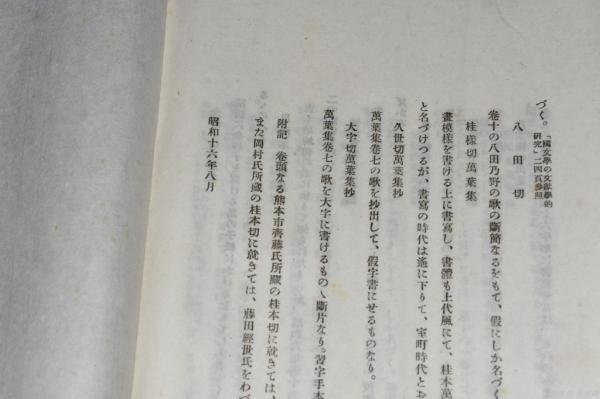 づく。「國文學の文獻學的研究」二四頁參照
八田切
卷十の八田乃野の歌の斷簡なるをもて、假にしか名づく
桂樣切萬葉集
畫模樣を書ける上に書寫し、書體も上代風にて、桂本萬
と名づけつるが、書寫の時代は遙に下りて、室町時代とお
久世切萬葉集抄
萬葉集卷七の歌を抄出して、假字書にせるものなり。
大字切萬葉集抄
萬葉集卷七の歌を大字に書けるもの丶斷片なり。習字手本
附記 卷頭なる熊本市齊藤氏所藏の桂本切に就きては、
また岡村氏所藏の桂本切に就きては、藤田經世氏をわづ
昭和十六年八月